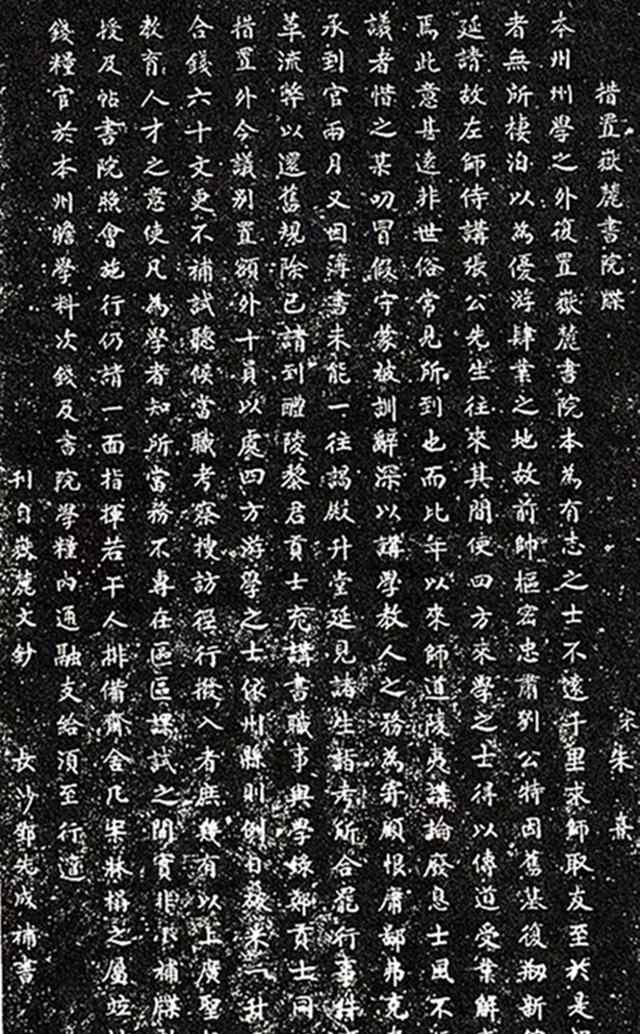 措置嶽麓書院牒
宋朱熹
本州州學之外復置嶽麓書院本為有志之士不遠千里求師取友至於是
者無所棲泊以為優游肄業之地故前帥樞密忠肅劉公特因舊基復刱新
延請故左師侍講張公先生往來其間使四方來學之士得以傳道受業解
焉此意甚遠非世俗常見所到也而比年以來師道陵夷講論廢息士風不
議者惜之某叨冒假守蒙被訓辭深以講學教人之務為寄顧恨庸鄙弗克
承到官兩月又困簿書未能一往謁殿升堂延見諸生詣考所合罷行事件
革流弊以還舊規除已請到醴陵黎君貢士充講書職事與學錄鄭貢士同
措置外今議別置額外十員以處四方游學之士依州縣則例日破米一升
合錢六十文更不補試聽候當職考察搜訪徑行撥入者庶幾有以上廣聖
教育人才之意使凡為學者知所當務不專在區區課試之間實非小補牒
授及帖書院照會施行仍請一面指揮若干人排備齋舍几案牀榻之屬竝
錢糧官於本州贍學料次錢及書院學糧內通融支給須至行遣
刊自嶽麓文鈔
長沙鄧先成補書